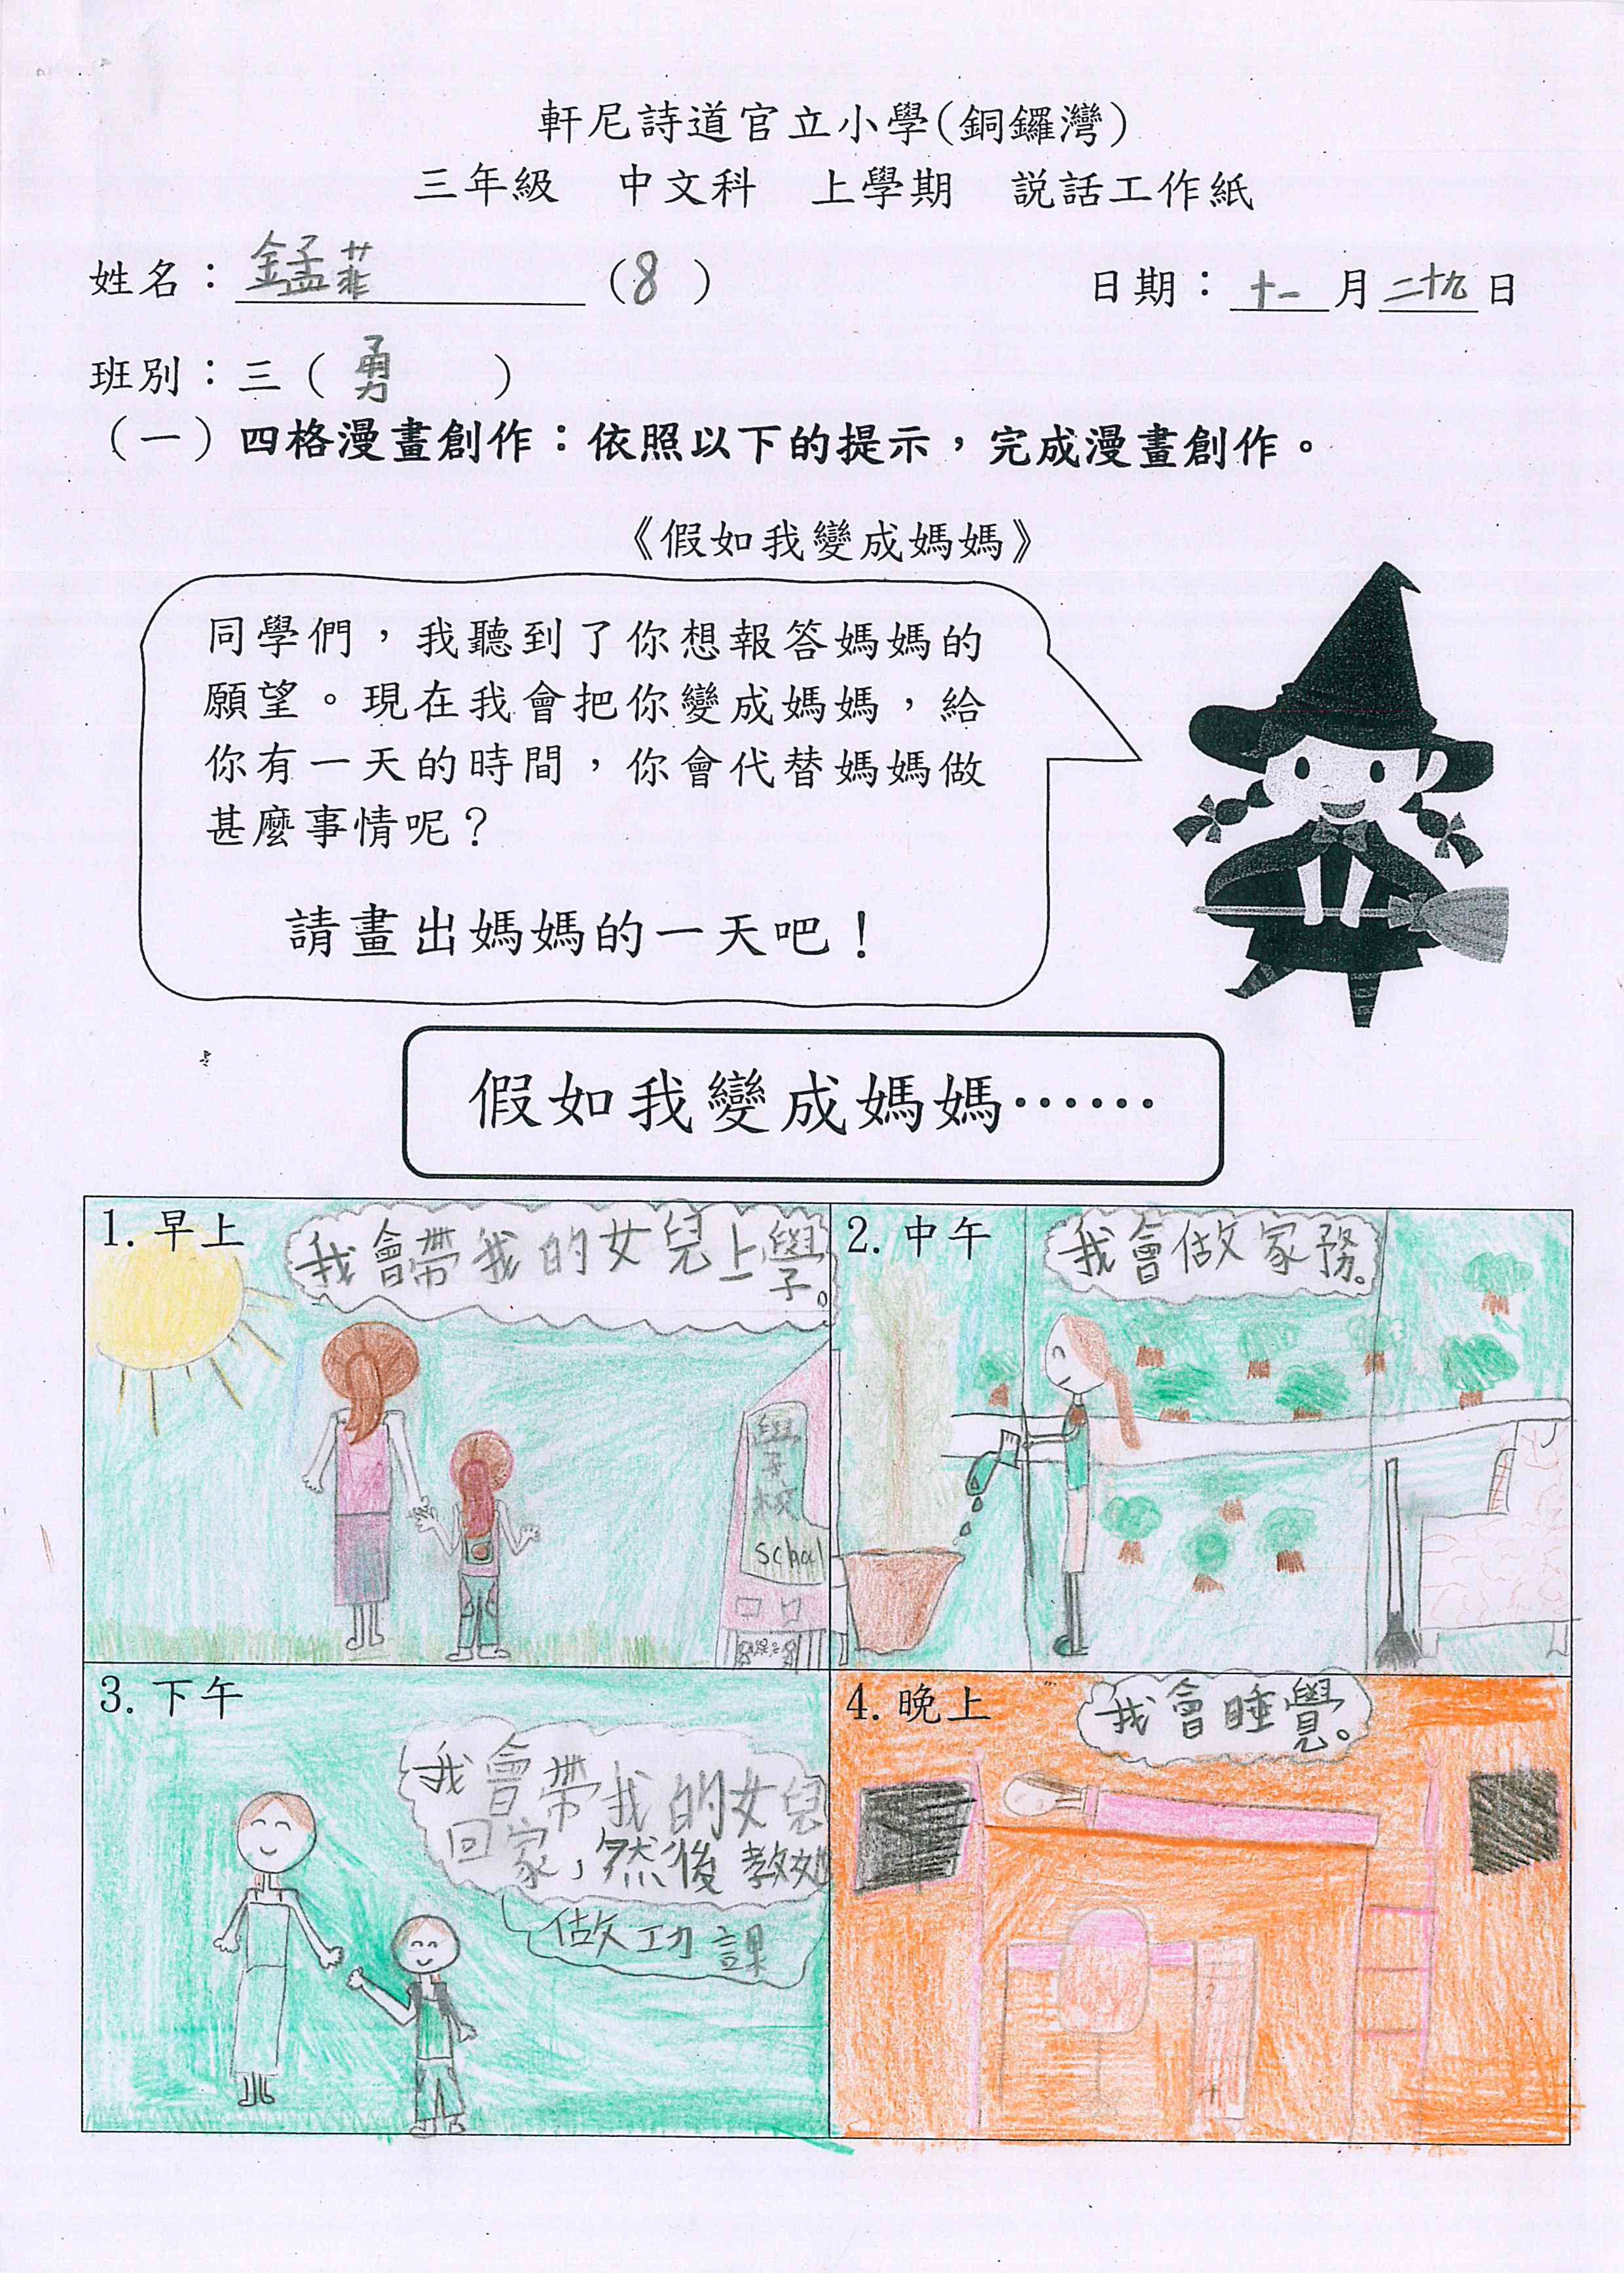 軒尼詩道官立小學(銅鑼灣)
三年級 中文科 上學期 説話工作紙
姓名：金孟菲 (8) 日期：十一月二十九日
班別：三(勇)
(一)四格漫畫創作：依照以下的提示，完成漫畫創作。
《假如我變成媽媽》
同學們，我聽到了你想報答媽媽的
願望。現在我會把你變成媽媽，給
你有一天的時間，你會代替媽媽做
甚麼事情呢？
請畫出媽媽的一天吧！
假如我變成媽媽……
1. 早上
我會帶我的女兒上學。
學校
school
2. 中午
我會做家務。
3. 下午
我會帶我的女兒
回家，然後教她
做功課
4. 晚上
我會睡覺。